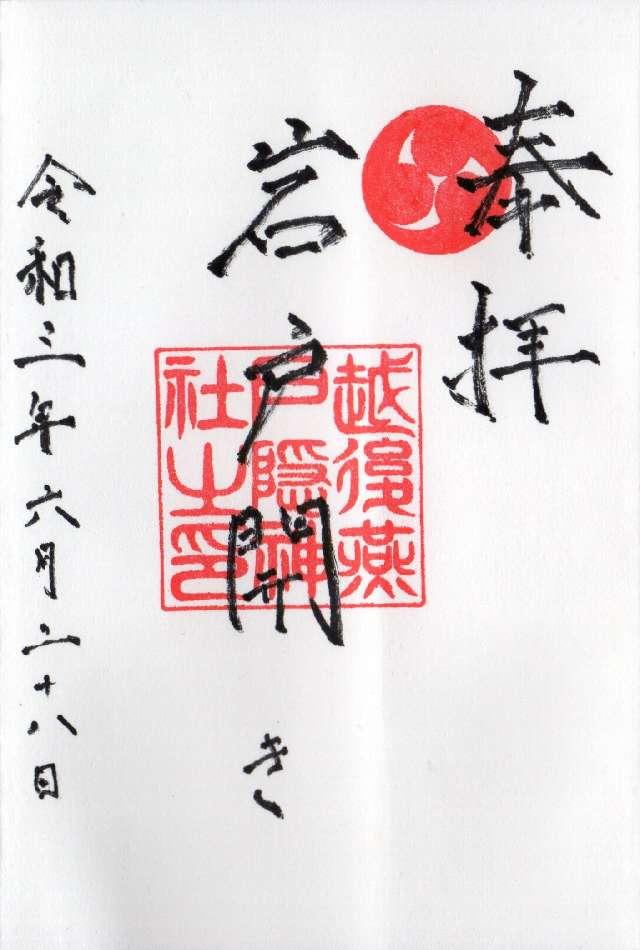 奉拝
岩戸開き
越後燕
戸隠神
社之印
令和三年六月二十八日